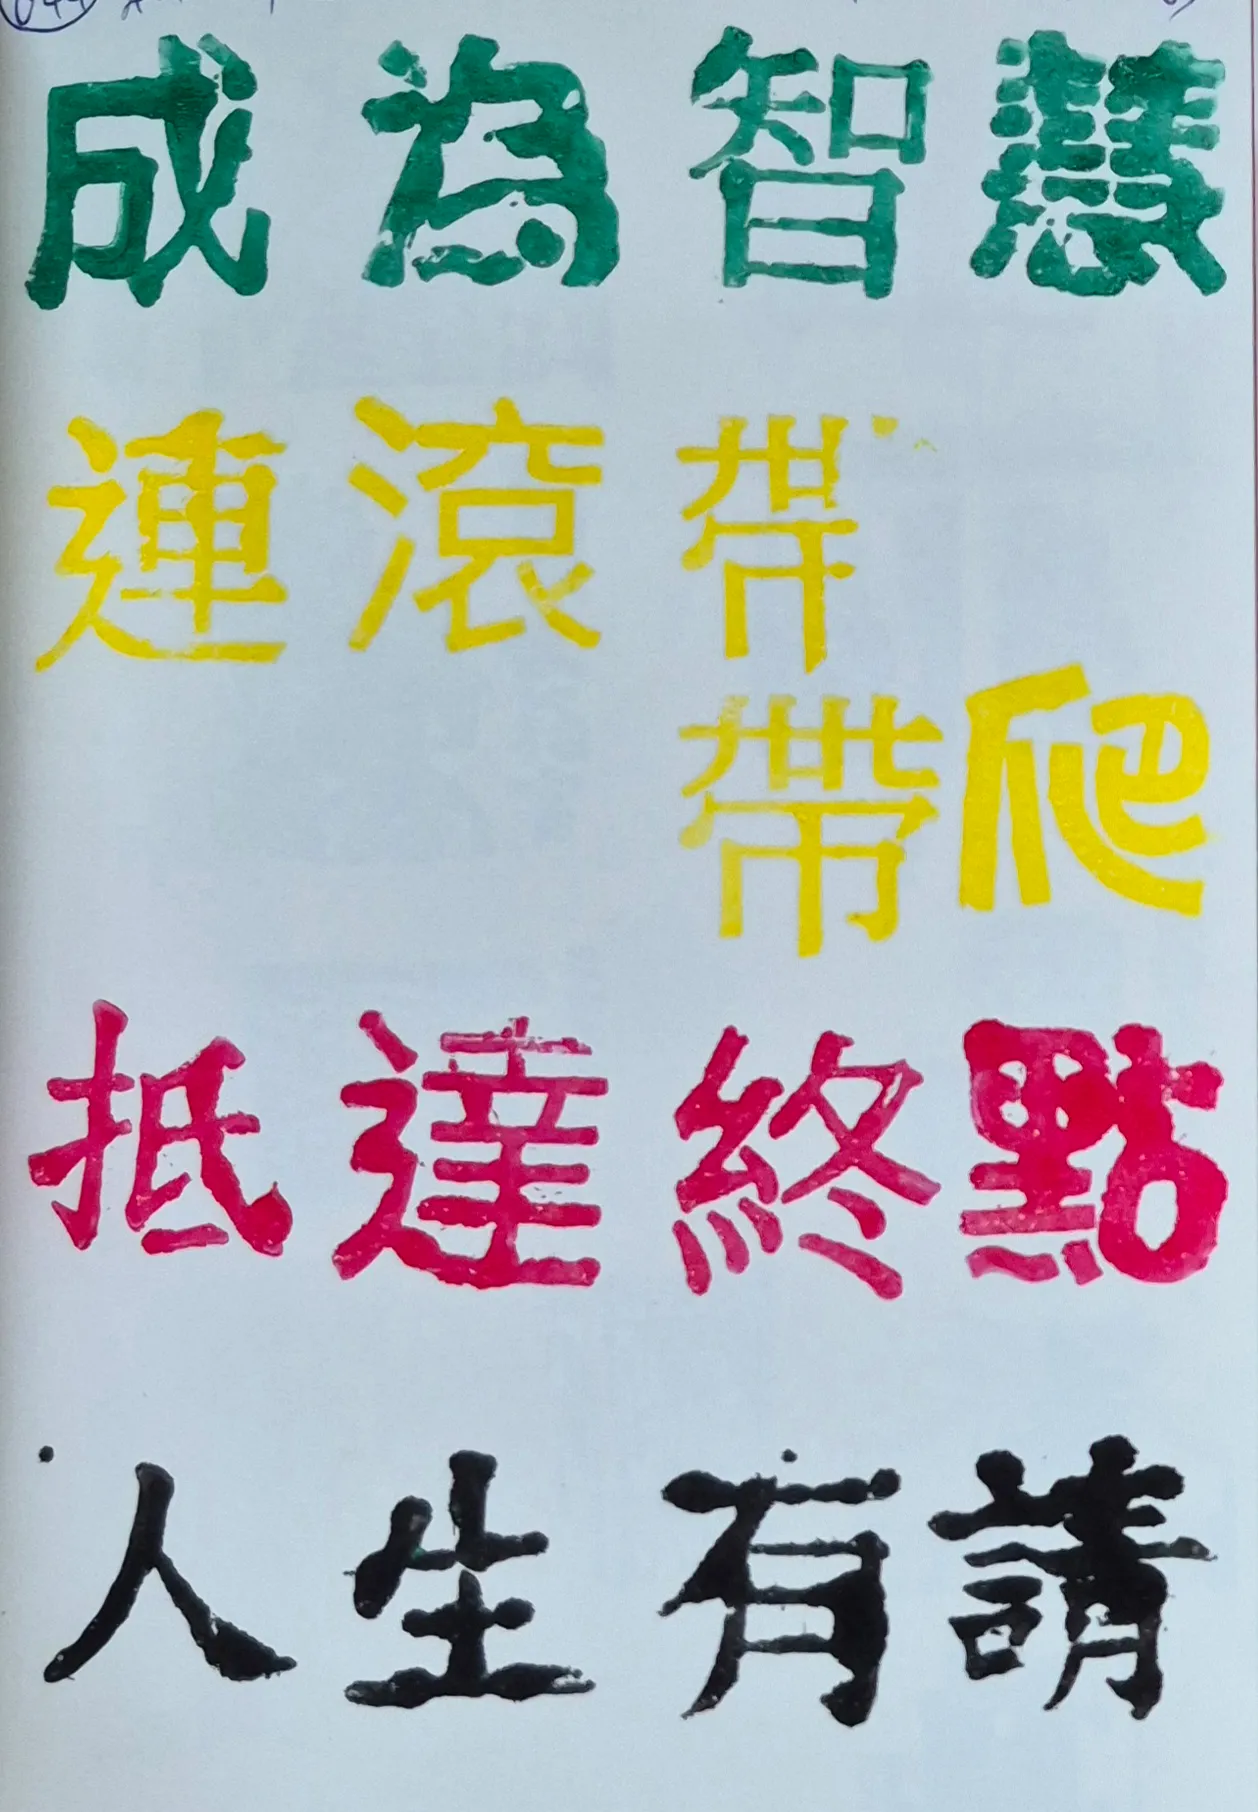 成為智慧
連滾帶
帶爬
抵達終點
人生有請